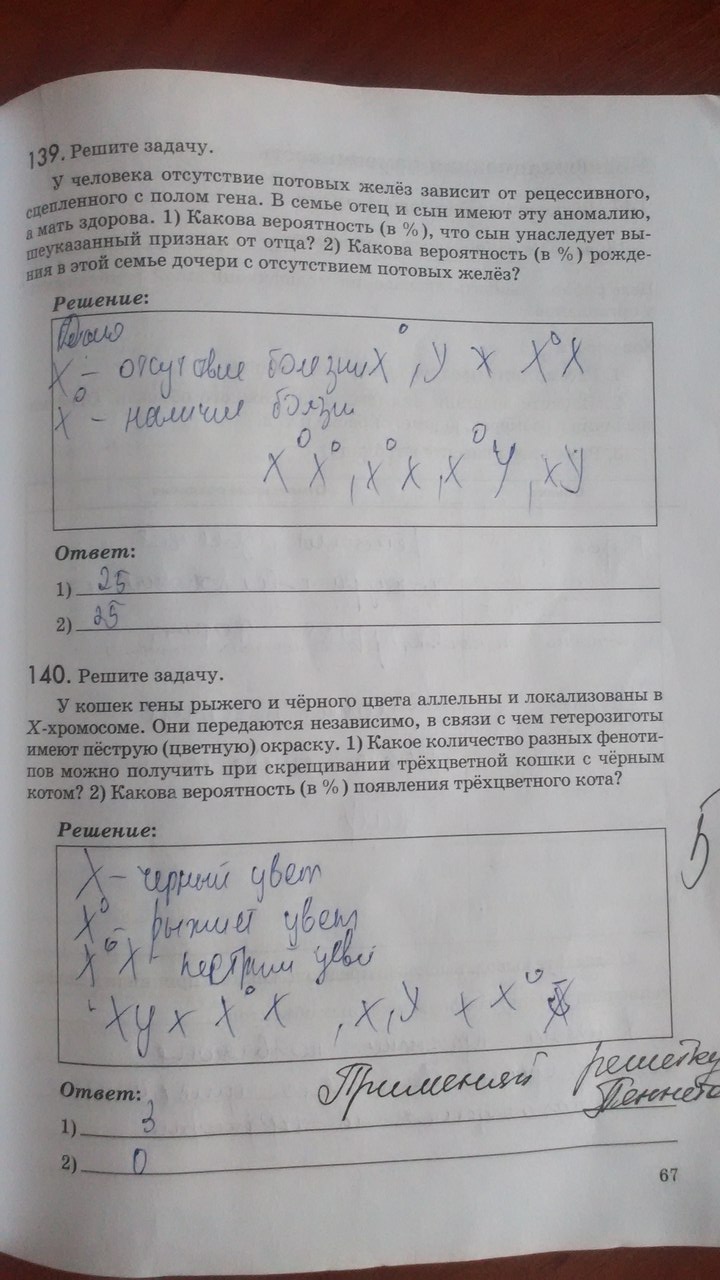 139. Решите задачу.
У человека отсутствие потовых желёз зависит от рецессивного,
сцепленного с полом гена. В семье отец и сын имеют эту аномалию,
а мать здорова. 1) Какова вероятность (в %), что сын унаследует вы-
шеуказанный признак от отца? 2) Какова вероятность (в %) рожде-
ния в этой семье дочери с отсутствием потовых желёз?
Решение:
X – отсутствие болезни X⁰, У х X⁰X
X⁰ – наличие
X⁰X⁰, X⁰X, X⁰У, XУ
Ответ:
1) 25
2) 25
140. Решите задачу.
У кошек гены рыжего и чёрного цвета аллельны и локализованы в
X-хромосоме. Они передаются независимо, в связи с чем гетерозиготы
имеют пёструю (цветную) окраску. 1) Какое количество разных феноти-
пов можно получить при скрещивании трёхцветной кошки с чёрным
котом? 2) Какова вероятность (в %) появления трёхцветного кота?
Решение:
X – черный цвет
X⁰ – цвет
X⁰X –
XУ х X⁰X , X, У х X⁰
5
Применяй решетку
Пеннета
Ответ:
1) 3
2) 0
67